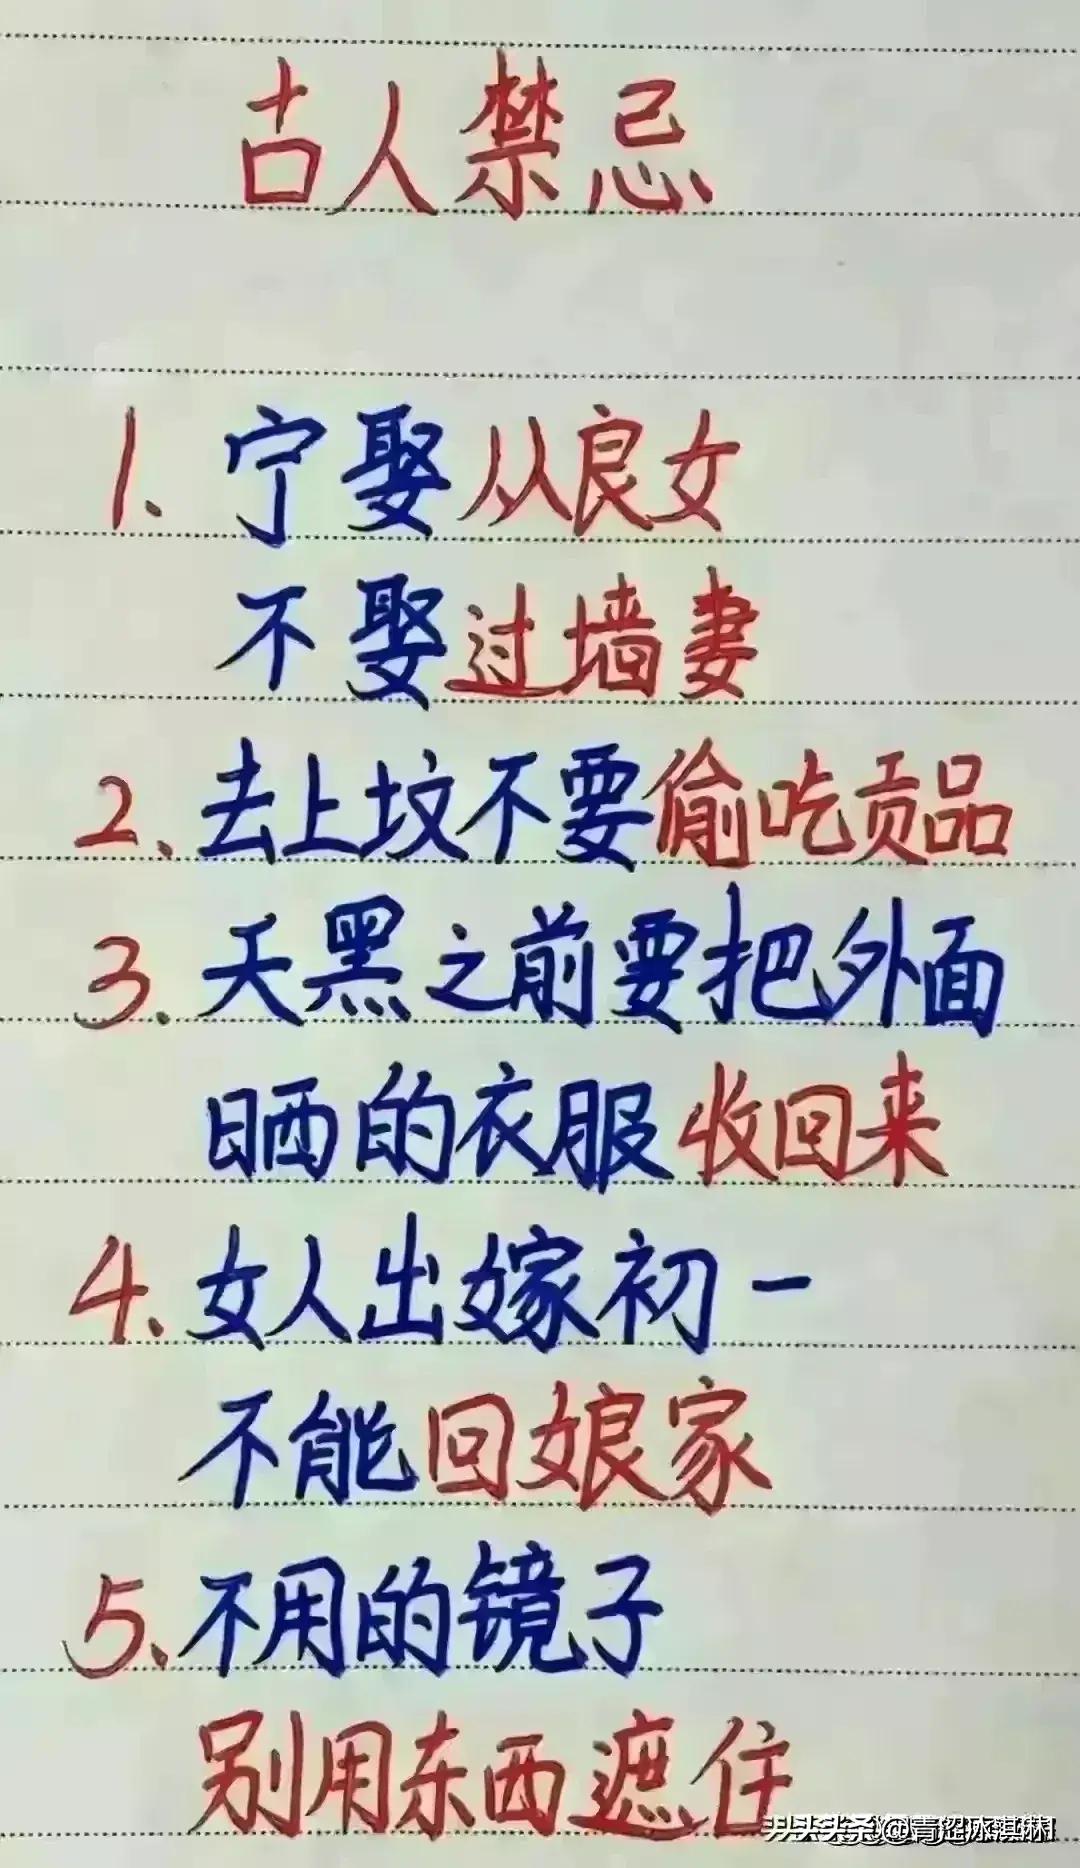 古人禁忌
1.宁娶从良女
不娶过墙妻
2.去上坟不要偷吃贡品
3.天黑之前要把外面
晒的衣服收回来
4.女人出嫁初一
不能回娘家
5.不用的镜子
别用东西遮住
头条@青涩冰淇淋